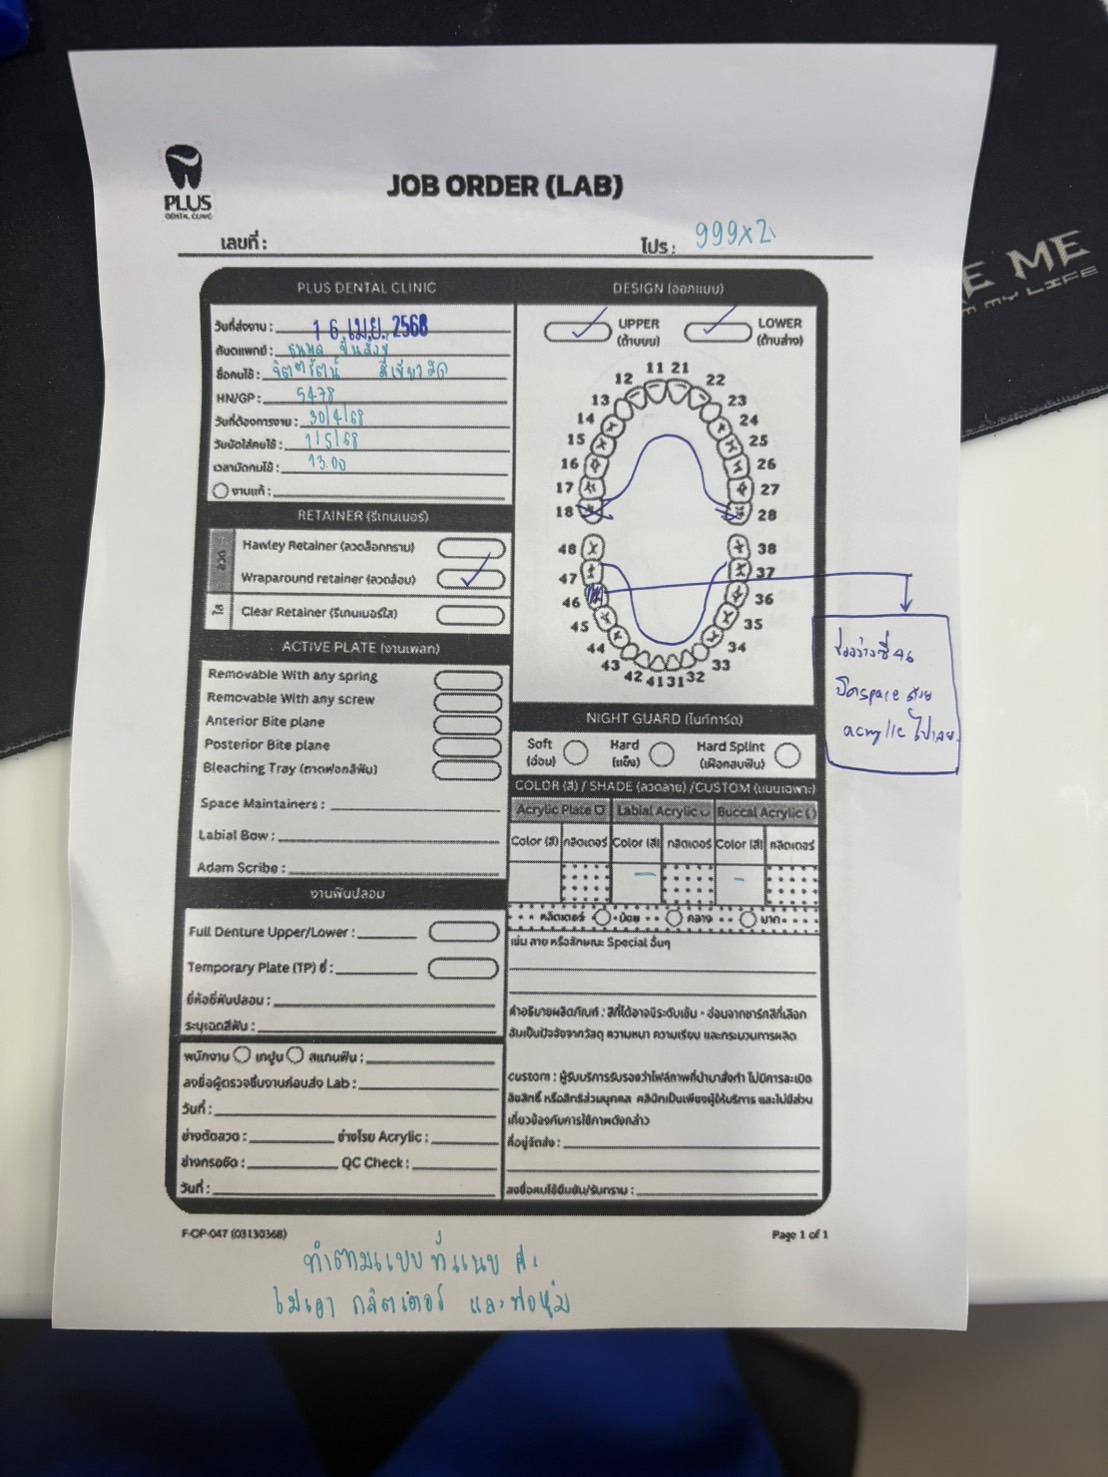 PLUS
DENTAL CLINIC
JOB ORDER (LAB)
เลขที่ :
โปร : 999x2
PLUS DENTAL CLINIC
วันที่ส่งงาน : 16 เม.ย. 2568
ทันตแพทย์ :
ชื่อคนไข้ : จิตรัตน์
HN/GP : 5478
วันที่ต้องการงาน : 30/4/68
วันนัดใส่คนไข้ : 1/5/68
เวลานัดคนไข้ : 13.00
งานแก้ :
RETAINER (รีเทนเนอร์)
ลวด
Hawley Retainer (ลวดล็อกกราม)
Wraparound retainer (ลวดล้อม)
ใส
Clear Retainer (รีเทนเนอร์ใส)
ACTIVE PLATE (งานเพลท)
Removable With any spring
Removable With any screw
Anterior Bite plane
Posterior Bite plane
Bleaching Tray (ถาดฟอกสีฟัน)
Space Maintainers :
Labial Bow :
Adam Scribe :
งานฟันปลอม
Full Denture Upper/Lower :
Temporary Plate (TP) ซี่ :
ยี่ห้อซี่ฟันปลอม :
ระบุเฉดสีฟัน :
พนักงาน เทปูน สแกนฟัน :
ลงชื่อผู้ตรวจชิ้นงานก่อนส่ง Lab :
วันที่ :
ช่างดัดลวด : ช่างโรย Acrylic :
ช่างกรอขัด : QC Check :
วันที่ :
DESIGN (ออกแบบ)
UPPER
(ด้านบน)
LOWER
(ด้านล่าง)
11 21
12 22
13 23
14 24
15 25
16 26
17 27
18 28
48 38
47 37
46 36
45 35
44 34
43 33
42 41 31 32
ช่องว่างซี่ 46
ปิด space ด้วย
acrylic ไปเลย
NIGHT GUARD (ไนท์การ์ด)
Soft
(อ่อน)
Hard
(แข็ง)
Hard Splint
(เฝือกสบฟัน)
COLOR (สี) / SHADE (ลวดลาย) /CUSTOM (แบบเฉพาะ)
Acrylic Plate Labial Acrylic Buccal Acrylic
Color (สี) กลิตเตอร์ Color (สี) กลิตเตอร์ Color (สี) กลิตเตอร์
กลิตเตอร์ น้อย กลาง มาก
เช่น ลาย หรือลักษณะ Special อื่นๆ
คำอธิบายผลิตภัณฑ์ : สีที่ได้อาจมีระดับเข้ม - อ่อนจากชาร์ทสีที่เลือก
อันเป็นปัจจัยจากวัสดุ ความหนา ความเรียบ และกระบวนการผลิต
custom : ผู้รับบริการรับรองว่าไฟล์ภาพที่นำมาสั่งทำ ไม่มีการละเมิด
ลิขสิทธิ์ หรือสิทธิส่วนบุคคล คลินิกเป็นเพียงผู้ให้บริการ และไม่มีส่วน
เกี่ยวข้องกับการใช้ภาพดังกล่าว
ที่อยู่จัดส่ง :
ลงชื่อคนไข้ยืนยัน/รับทราบ :
F-OP-047 (03130368)
Page 1 of 1
ทำตามแบบที่แนบ
ไม่เอา กลิตเตอร์ และท่อหุ้ม